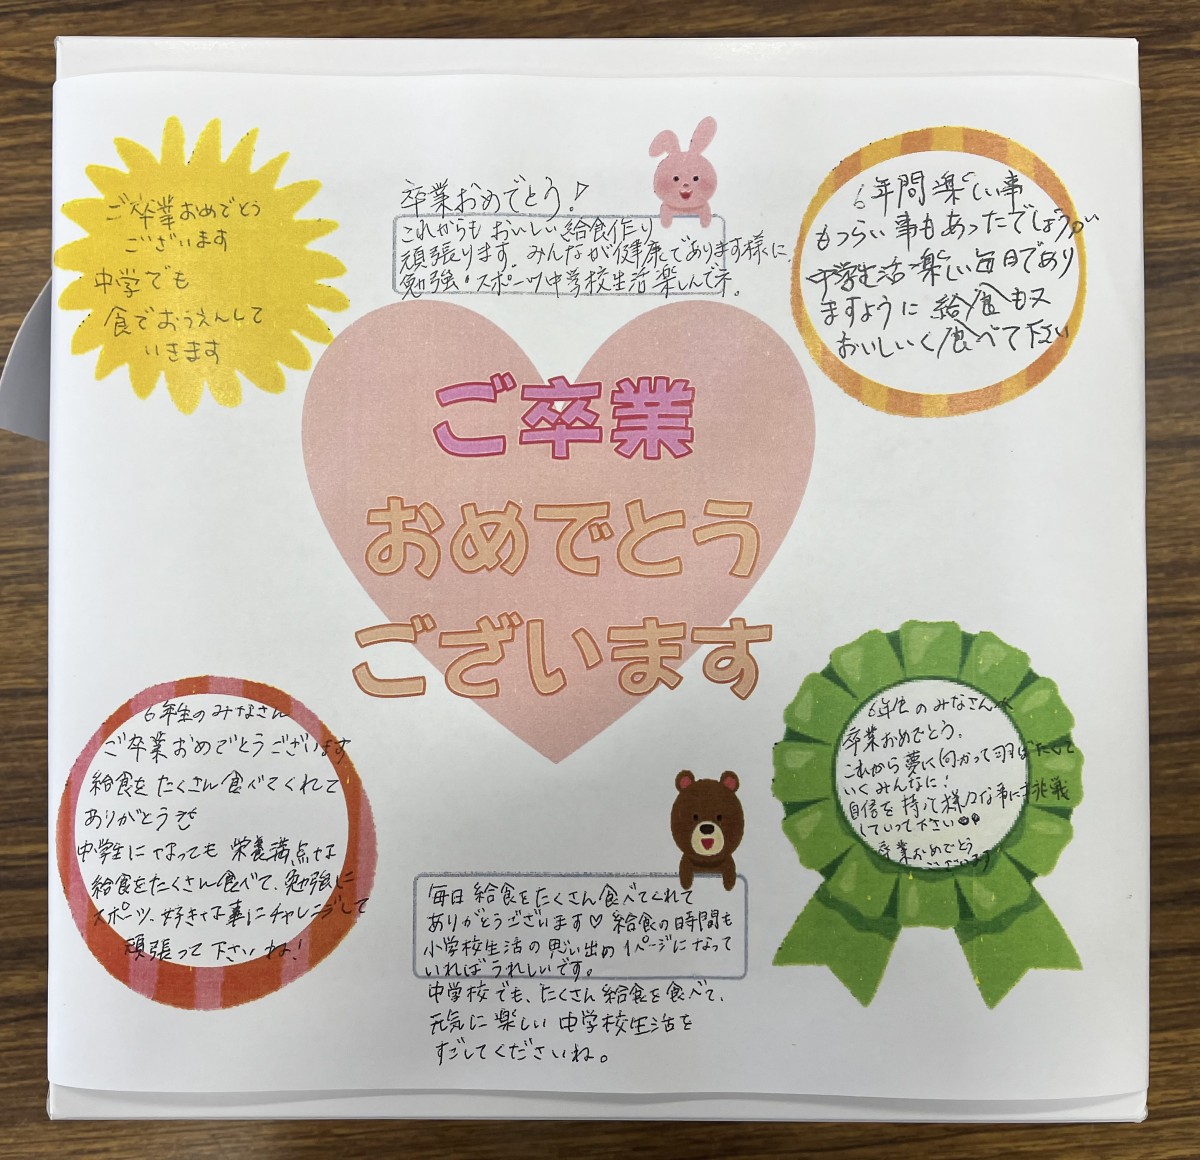 ご卒業おめでとう
ございます
中学でも
食でおうえんして
いきます
卒業おめでとう!
これからも おいしい給食作り
頑張ります。みんなが健康であります様に、
勉強・スポーツ中学校生活楽しんでネ。
6年間楽しい事
もつらい事もあったでしょうが
中学生活楽しい毎日であり
ますように 給食も又
おいしいく食べて下さい
ご卒業
おめでとう
ございます
6年生のみなさん
ご卒業おめでとうございます
給食をたくさん食べてくれて
ありがとう
中学生になっても 栄養満点な
給食をたくさん食べて、勉強に
スポーツ、好きな事にチャレンジして
頑張って下さいね!
毎日 給食をたくさん食べてくれて
ありがとうございます♡ 給食の時間も
小学校生活の思い出の1ページになって
いればうれしいです。
中学校でも、たくさん給食を食べて、
元気に楽しい中学校生活を
すごしてくださいね。
6年生のみなさんへ
卒業おめでとう。
これから夢に向かって羽ばたいて
いくみんなに!
自信を持って様々な事に挑戦
していって下さい
卒業おめでとう
ございます